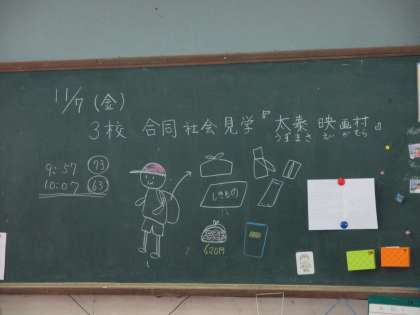 11/7 (金)
3校 合同 社会 見学『太秦 映画村』
うずまさ えいがむら
9:57 73
10:07 63
しきもの
620円